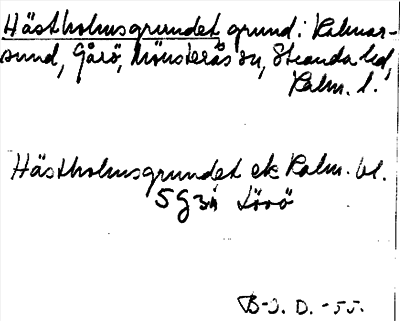 Hästholmsgrundet grund i Kalmar-
sund, Gårö, Mönsterås sn, Stranda hd,
Kalm. l.
Hästholmsgrundet ek Kalm. bl.
5G3h Lövö
B-J. D. -55.